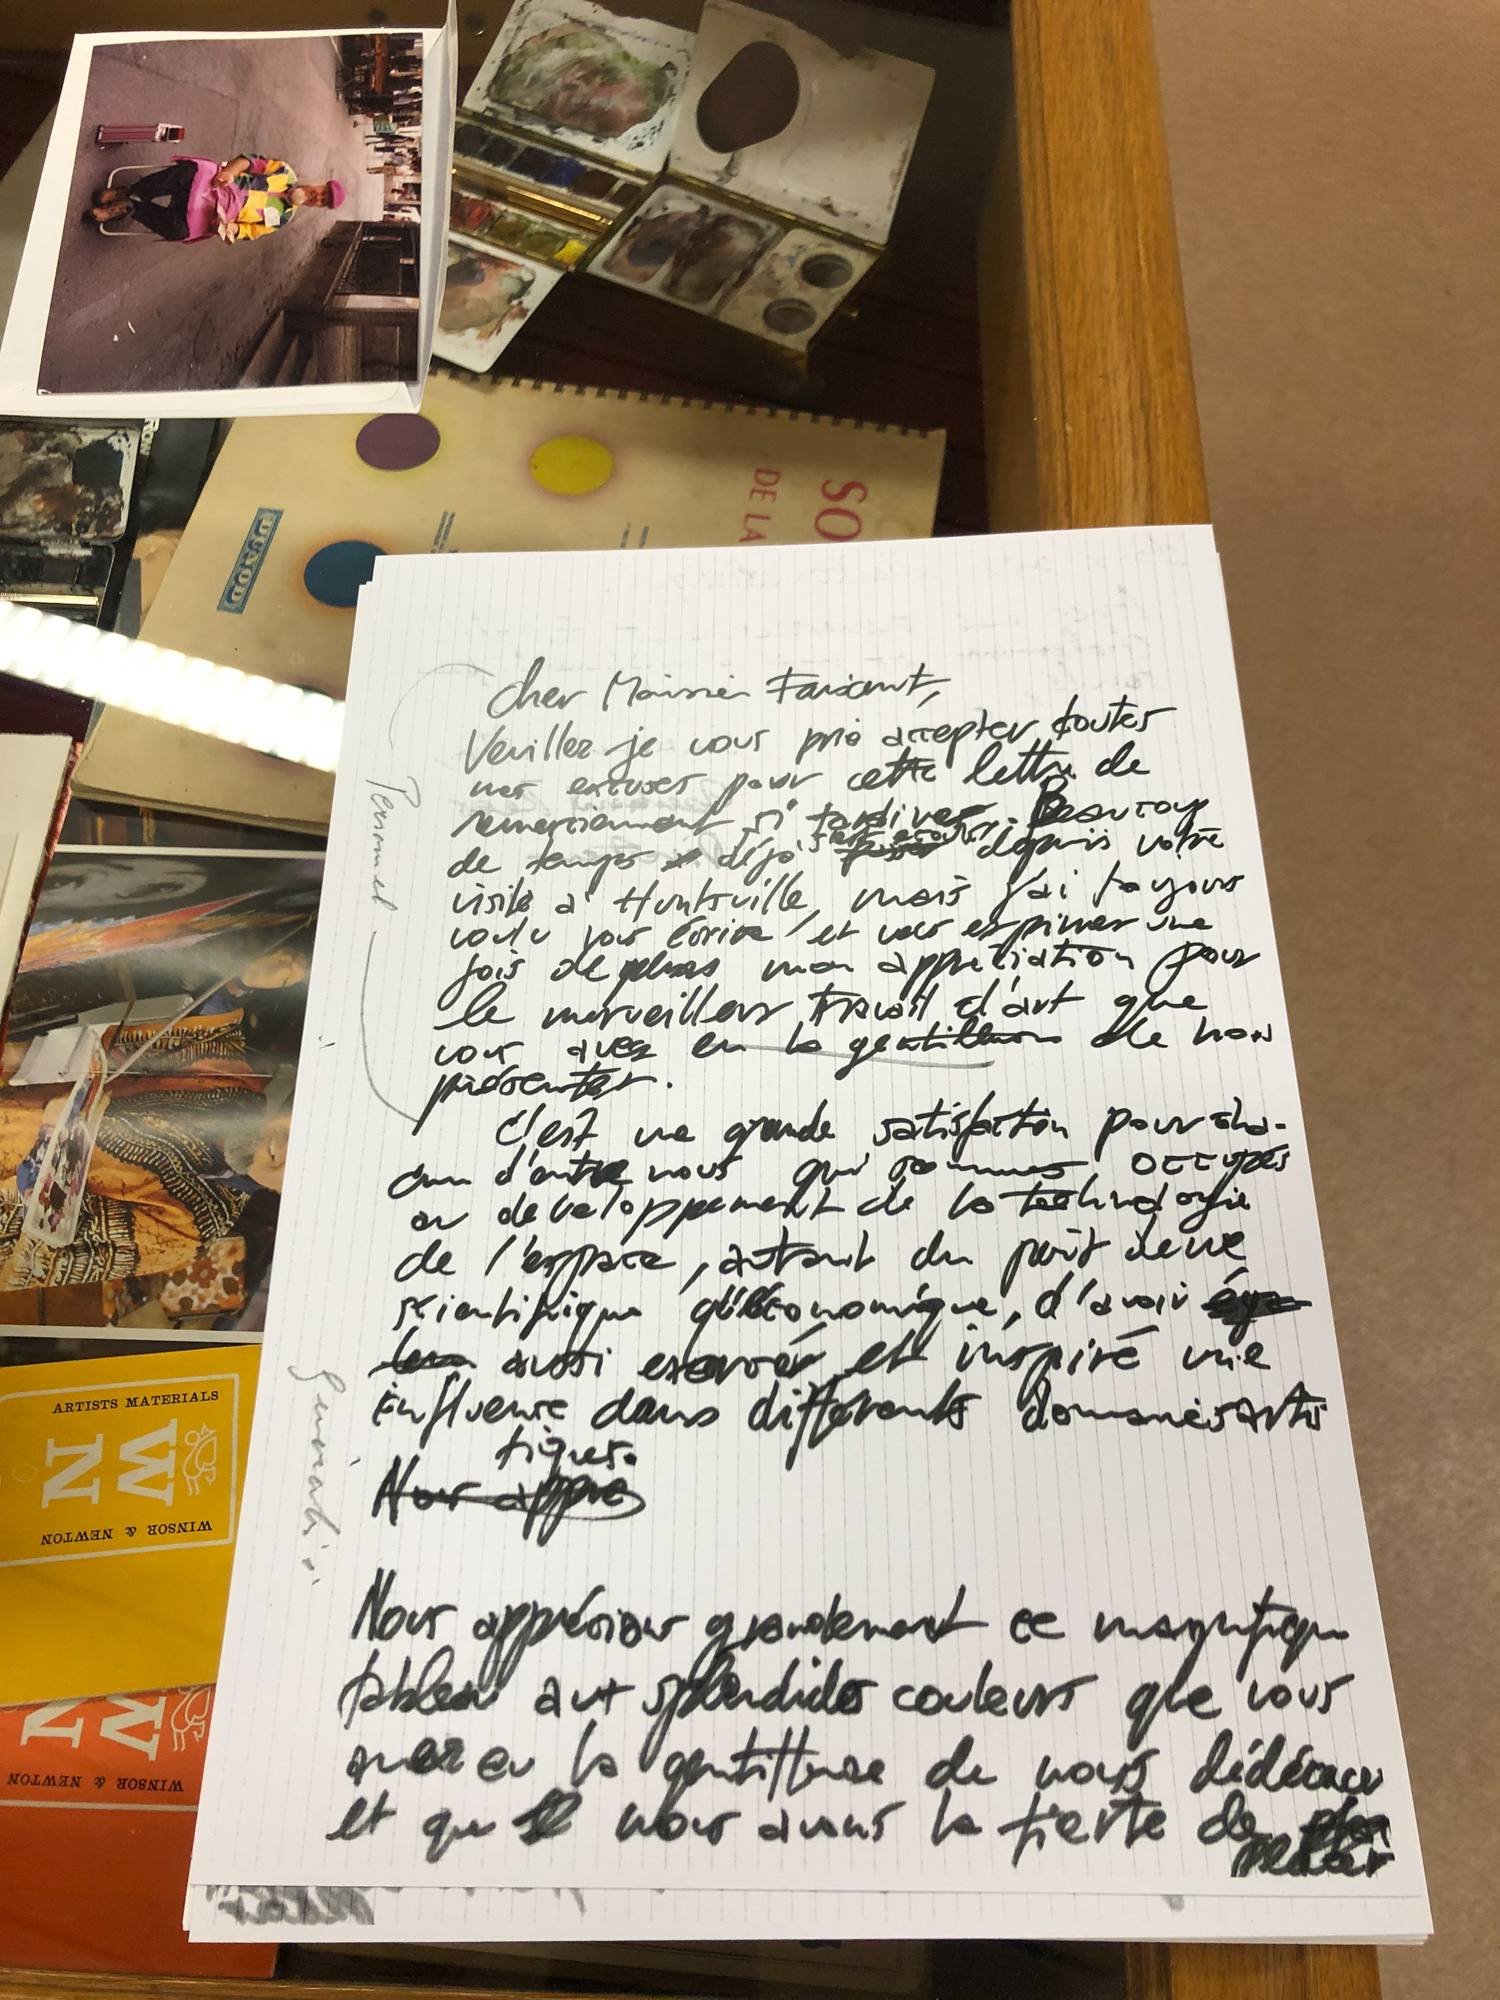 RON
SO
DE LA
DUNOD
Cher Monsieur
Veuillez je vous prie accepter toutes
mes excuses pour cette lettre de
remerciement si tardive. Beaucoup
de temps déjà s'est écoulé depuis votre
visite a Huntsville, mais j'ai toujours
voulu vous écrire et vous exprimer une
fois de plus mon appréciation pour
le merveilleux travail d'art que
vous avez eu la gentillesse de nous
présenter.
Personnel
C'est une grande satisfaction pour cha-
cun d'entre nous qui sommes occupés
au developpement de la technologie
de l'espace, autant du point de vue
scientifique qu'économique, d'avoir
aussi exercé et inspiré une
influence dans différents domaines artis
tiques.
Nous appré
Nous apprécions grandement ce magnifique
tableau aux splendides couleurs que vous
avez eu la gentillesse de nous dédicacer
et que nous avons la fierté de
ARTISTS MATERIALS
W
N
WINSOR & NEWTON
W
N
WINSOR & NEWTON